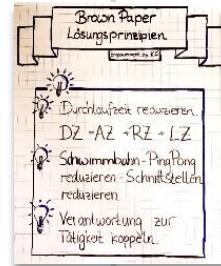 Brown Paper
Lösungsprinzipien
Durchlaufzeit reduzieren.
DZ = AZ + RZ + LZ
Schwimmbahn-PingPong
reduzieren - Schnittstellen
reduzieren
Verantwortung zur
Tätigkeit koppeln.